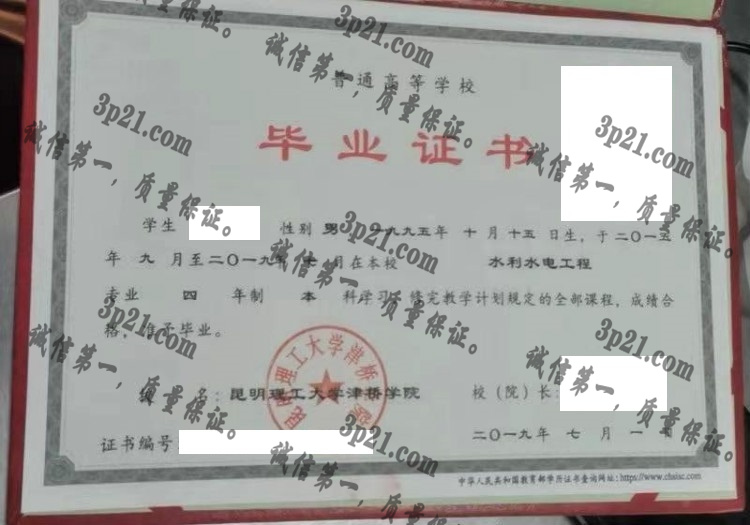 普通高等学校
毕业证书
学生 性别 男 一九九五年 十 月 十五 日生，于二〇一五
年 九 月至二〇一九年 七 月在本校 水利水电工程
专业 四 年制 本 科学习，修完教学计划规定的全部课程，成绩合
格，准予毕业。
校 名：昆明理工大学津桥学院 校（院）长：
证书编号 二〇一九年 七 月 一
中华人民共和国教育部学历证书查询网址：https://www.chsi.com.cn
昆明理工大学津桥学院
3p21.com
诚信第一，质量保证。
3p21.com
诚信第一，质量保证。
3p21.com
诚信第一，质量保证。
3p21.com
诚信第一，质量保证。
3p21.com
诚信第一，质量保证。
3p21.com
诚信第一，质量保证。
3p21.com
诚信第一，质量保证。
3p21.com
诚信第一，质量保证。